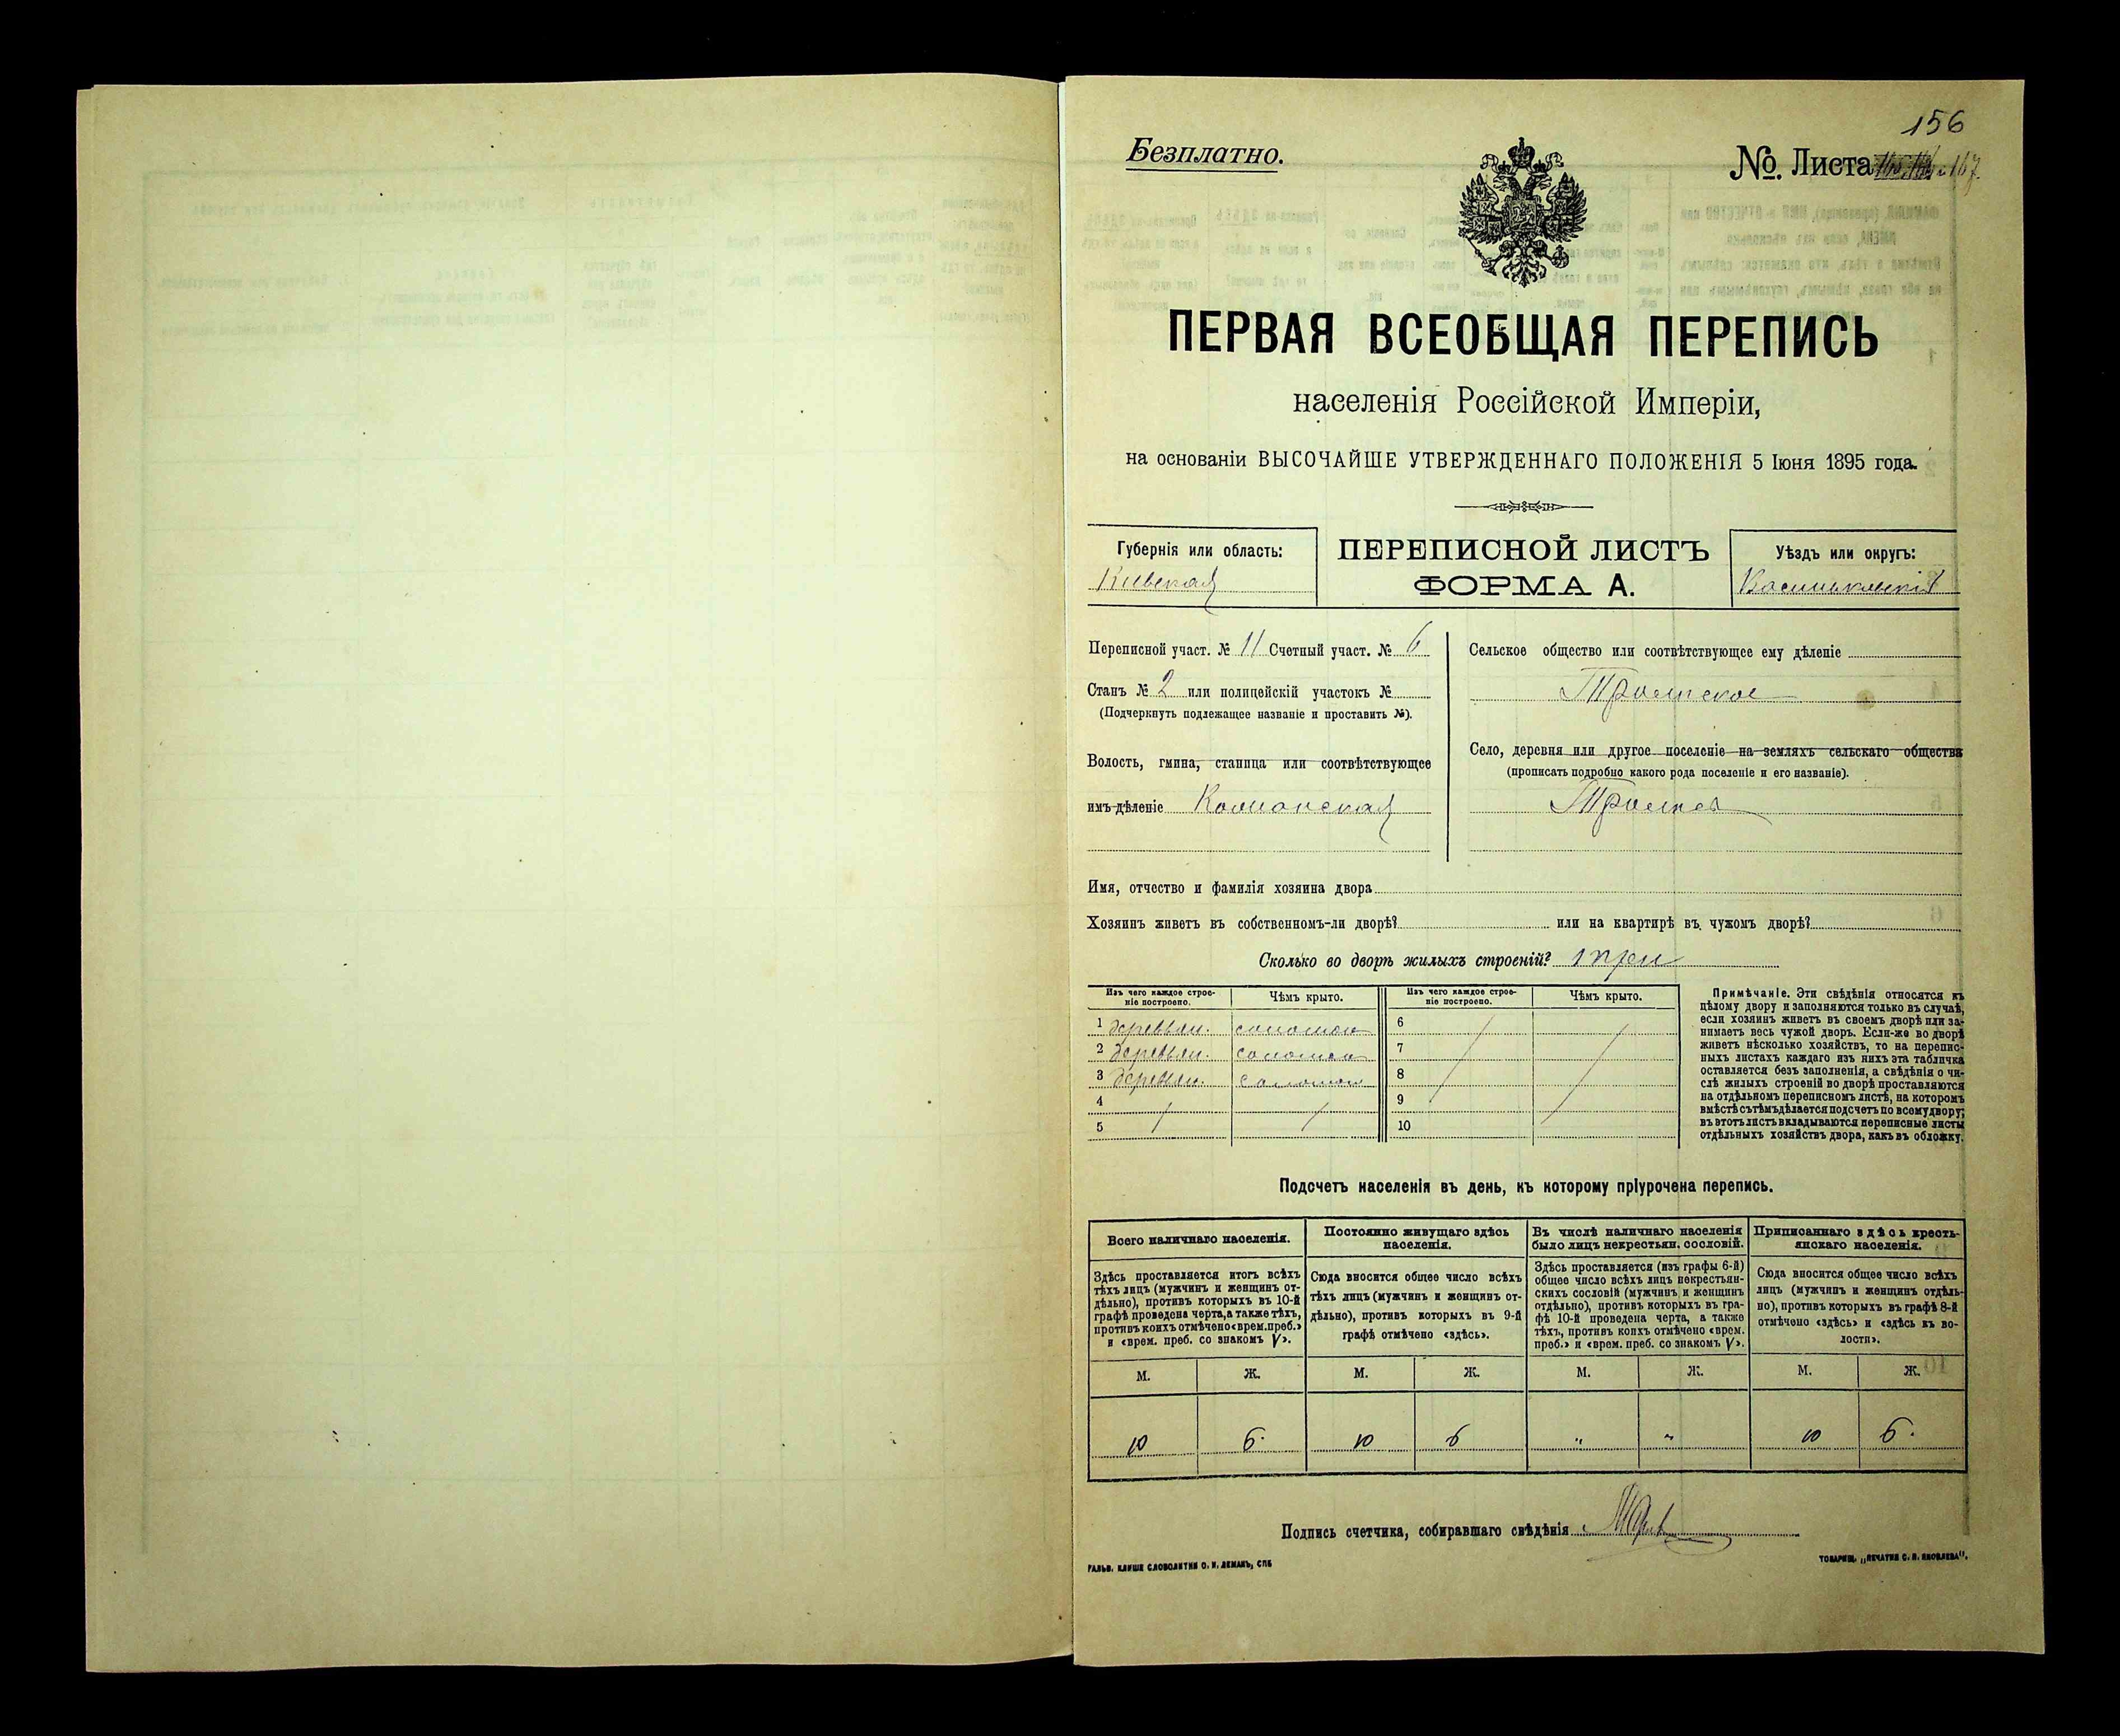 156
Безплатно.
№ Листа 167.
ПЕРВАЯ ВСЕОБЩАЯ ПЕРЕПИСЬ
населенія Россійской Имперіи,
на основаніи ВЫСОЧАЙШЕ УТВЕРЖДЕННАГО ПОЛОЖЕНІЯ 5 Іюня 1895 года.
Губернія или область:
Кіевская
ПЕРЕПИСНОЙ ЛИСТЪ
ФОРМА А.
Уѣздъ или округъ:
Васильковскій
Переписной участ. № 11 Счетный участ. № 6
Станъ № 2 или полицейскій участокъ №
(Подчеркнуть подлежащее названіе и проставить №).
Волость, гмина, станица или соотвѣтствующее
имъ дѣленіе
Сельское общество или соотвѣтствующее ему дѣленіе
Село, деревня или другое поселеніе на земляхъ сельскаго общества
(прописать подробно какого рода поселеніе и его названіе).
Имя, отчество и фамилія хозяина двора
Хозяинъ живетъ въ собственномъ-ли дворѣ? или на квартирѣ въ чужомъ дворѣ?
Сколько во дворѣ жилыхъ строеній? три
Изъ чего каждое строе-
ніе построено.
Чѣмъ крыто.
1 деревян. соломою
2 деревян. соломою
3 деревян. соломою
4
5
Изъ чего каждое строе-
ніе построено.
Чѣмъ крыто.
6
7
8
9
10
Примѣчаніе. Эти свѣдѣнія относятся къ
цѣлому двору и заполняются только въ случаѣ,
если хозяинъ живетъ въ своемъ дворѣ или за-
нимаетъ весь чужой дворъ. Если-же во дворѣ
живетъ нѣсколько хозяйствъ, то на перепис-
ныхъ листахъ каждаго изъ нихъ эта табличка
оставляется безъ заполненія, а свѣдѣнія о чи-
слѣ жилыхъ строеній во дворѣ проставляются
на отдѣльномъ переписномъ листѣ, на которомъ
вмѣстѣ съ тѣмъ дѣлается подсчетъ по всему двору;
въ этотъ листъ вкладываются переписные листы
отдѣльныхъ хозяйствъ двора, какъ въ обложку.
Подсчетъ населенія въ день, къ которому пріурочена перепись.
Всего наличнаго населенія.
Здѣсь проставляется итогъ всѣхъ
тѣхъ лицъ (мужчинъ и женщинъ от-
дѣльно), противъ которыхъ въ 10-й
графѣ проведена черта, а также тѣхъ,
противъ коихъ отмѣчено «врем. преб.»
и «врем. преб. со знакомъ V».
Постоянно живущаго здѣсь
населенія.
Сюда вносится общее число всѣхъ
тѣхъ лицъ (мужчинъ и женщинъ от-
дѣльно), противъ которыхъ въ 9-й
графѣ отмѣчено «здѣсь».
Въ числѣ наличнаго населенія
было лицъ некрестьян. сословій.
Здѣсь проставляется (изъ графы 6-й)
общее число всѣхъ лицъ некрестьян-
скихъ сословій (мужчинъ и женщинъ
отдѣльно), противъ которыхъ въ гра-
фѣ 10-й проведена черта, а также
тѣхъ, противъ коихъ отмѣчено «врем.
преб.» и «врем. преб. со знакомъ V».
Приписаннаго здѣсь кресть-
янскаго населенія.
Сюда вносится общее число всѣхъ
лицъ (мужчинъ и женщинъ отдѣль-
но), противъ которыхъ въ графѣ 8-й
отмѣчено «здѣсь» и «здѣсь въ во-
лости».
М. Ж. М. Ж. М. Ж. М. Ж.
10 6 10 6 " " 10 6
Подпись счетчика, собиравшаго свѣдѣнія
ГАЛЬВ. КЛИШЕ СЛОВОЛИТНИ О. И. ЛЕМАНЪ, СПБ
ТОВАРИЩ. „ПЕЧАТНЯ С. П. ЯКОВЛЕВА".